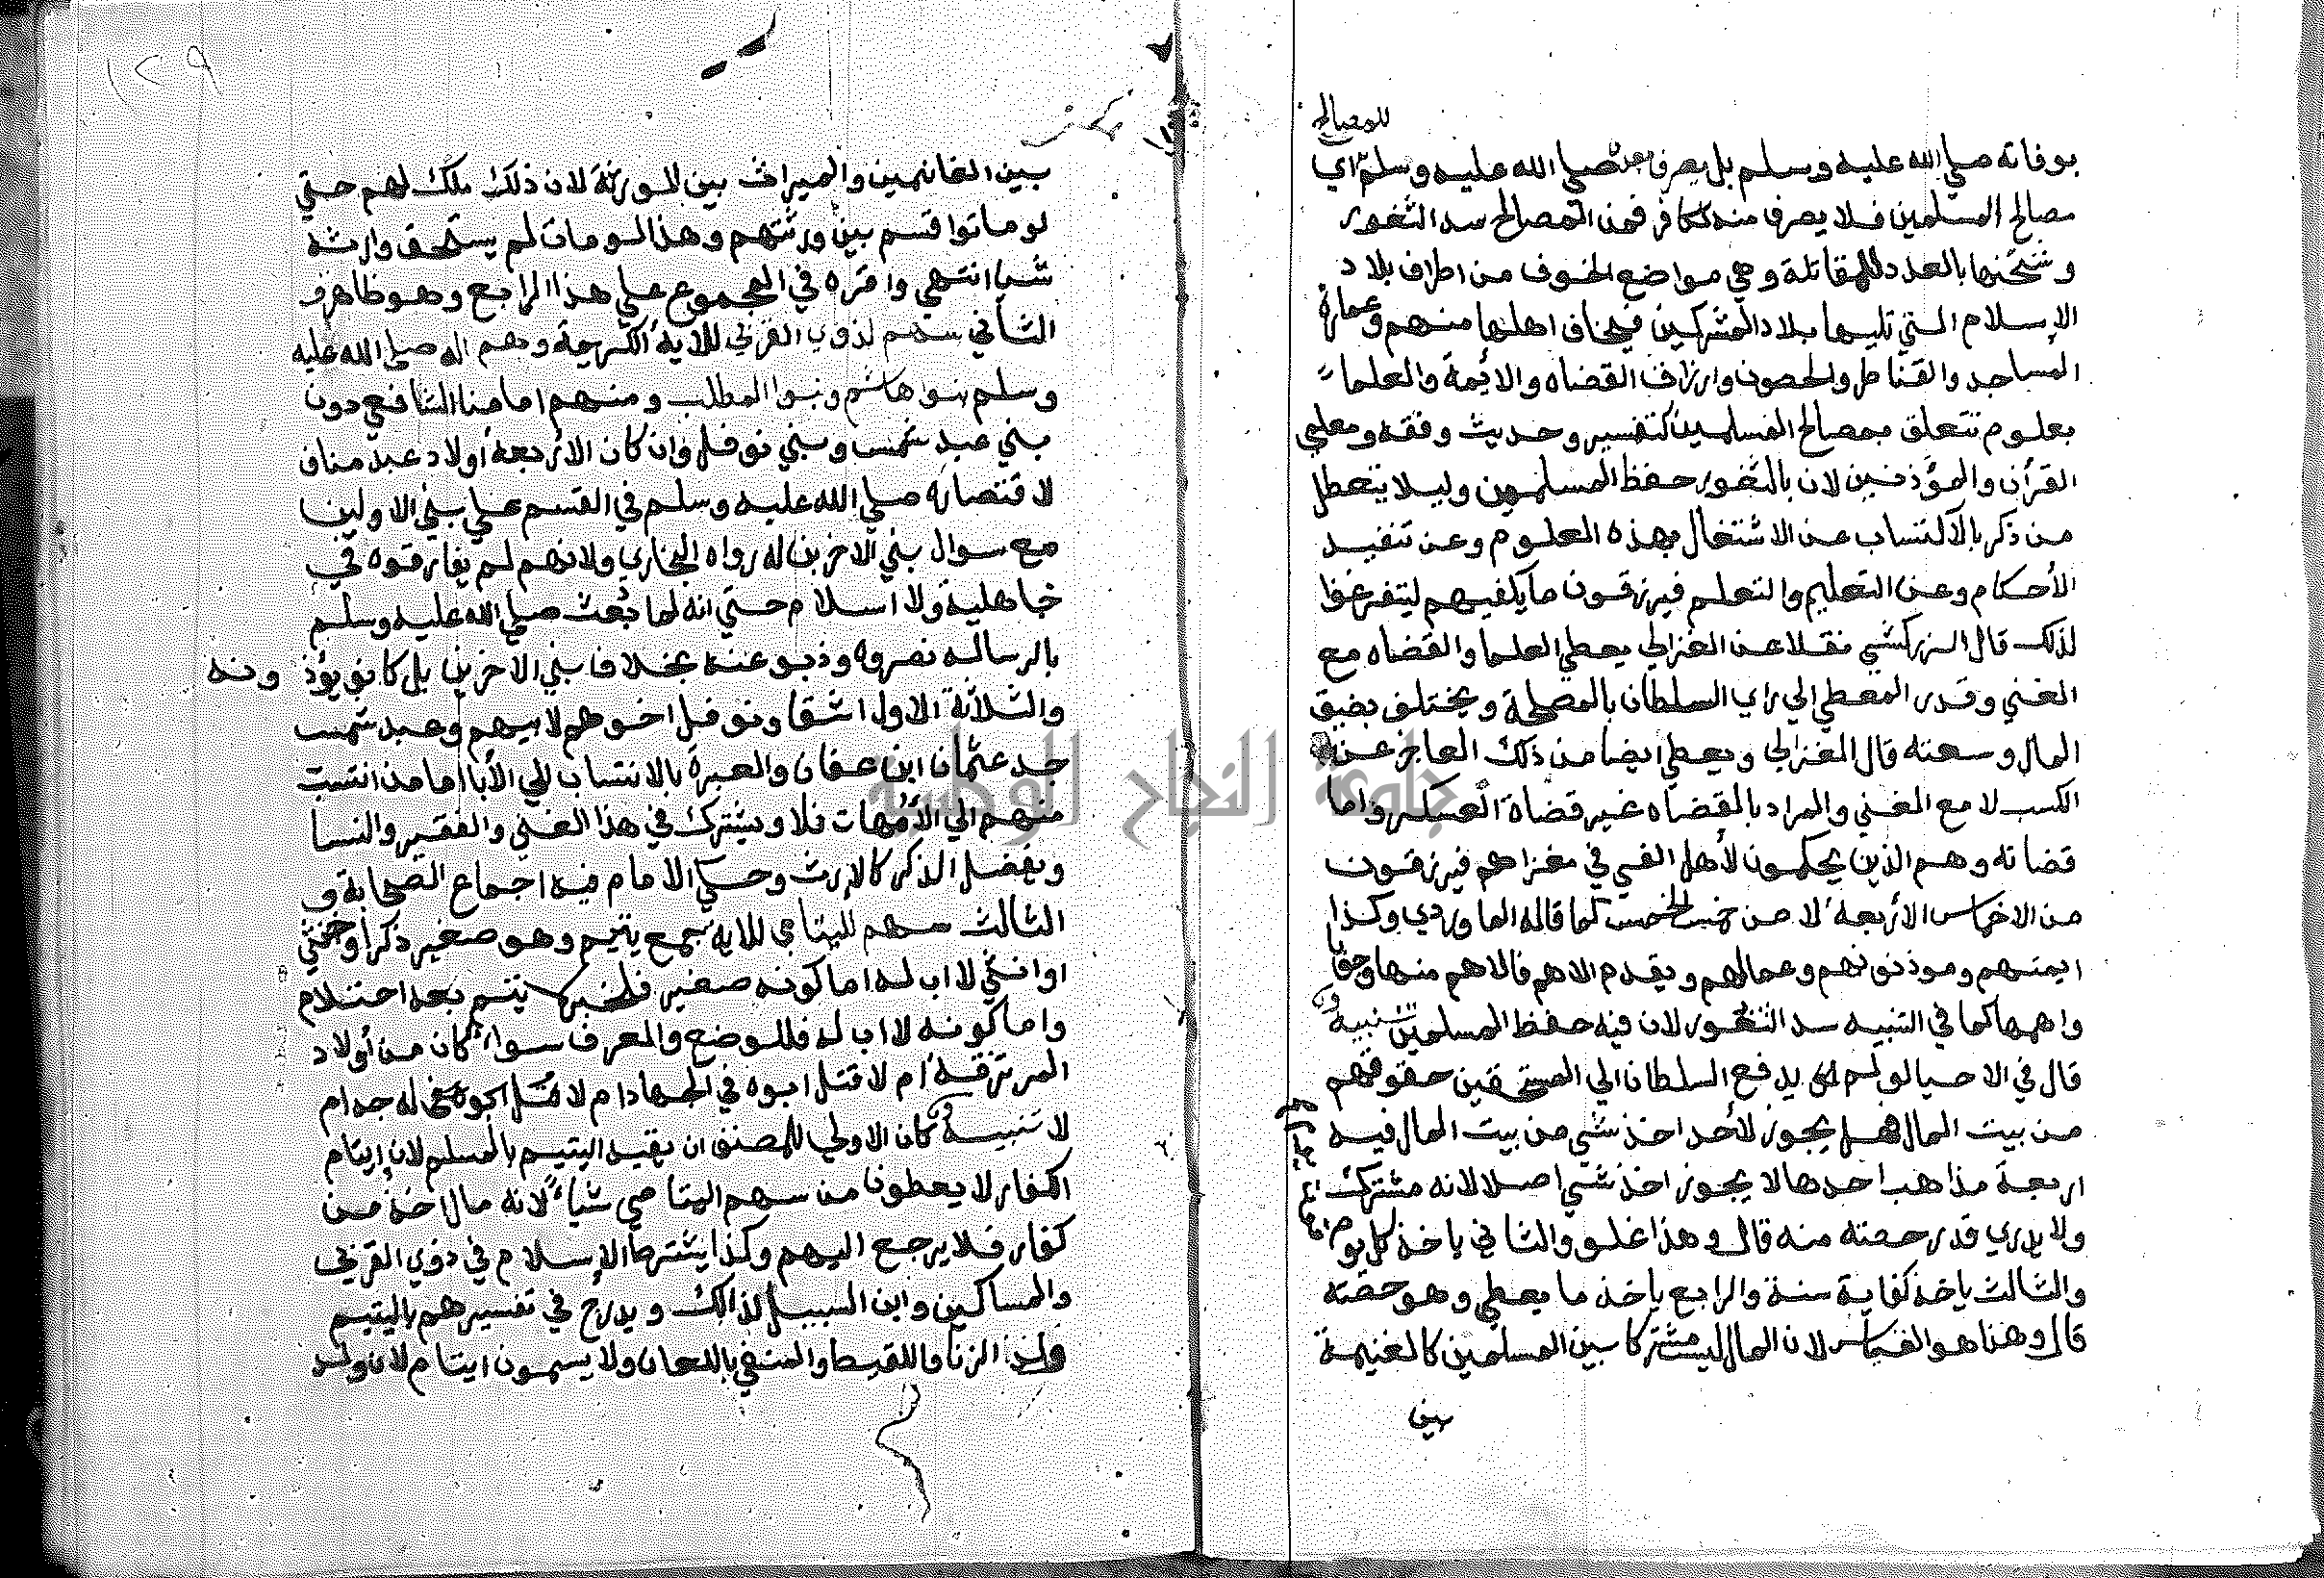 للمصالح
بوفاته صلي الله عليه وسلم بل يصرف بعده صلي الله عليه وسلم اي
مصالح المسلمين فلا يصرف منه لكافر فمن المصالح سد الثغور
وشحنها بالعدد للمقاتلة وهي مواضع الخوف من اطراف بلاد
الإسلام التي تليها بلاد المشركين فيخاف اهلها منهم وعمارة
المساجد والقناطر والحصون وارزاق القضاه والائمة والعلما
بعلوم تتعلق بمصالح المسلمين كتفسير وحديث وفقه ومعلمي
القرآن والمؤذنين لان بالثغور حفظ المسلمين وليلا يتعطل
من ذكر بالاكتساب عن الاشتغال بهذه العلوم وعن تنفيد
الأحكام وعن التعليم والتعلم فيرزقون ما يكفيهم ليتفرغوا
لذلك قال الزركشي نقلا عن الغزالي يعطي العلما والقضاه مع
الغني وقدر المعطي الي راي السلطان بالمصلحة ويختلف بضيق
المال وسعته قال الغزالي ويعطي ايضا من ذلك العاجز عن
الكسب لا مع الغني والمراد بالقضاه غير قضاة العسكر واما
قضاته وهم الذين يحكمون لأهل الفي في مغزاهم فيرزقون
من الاخماس الأربعة لا من خمس الخمس كما قاله الماوردي وكذا
ايمتهم وموذنونهم وعمالهم ويقدم الاهم فالاهم منها وجوبا
واهمها كما في التنبيه سد الثغور لان فيه حفظ المسلمين تنبيه
قال في الاحيا لو لم يدفع السلطان الي المستحقين حقوقهم
من بيت المال فهل يجوز لأحد اخذ شي من بيت المال فيه
اربعة مذاهب احدها لا يجوز اخذ شي اصلا لانه مشترك
ولا يدري قدر حصته منه قال وهذا غلو والثاني ياخذ كل يوم
والثالث ياخذ كفاية سنة والرابع ياخذ ما يعطي وهو حصته
قال وهذا هو القياس لان المال ليس مشتركا بين المسلمين كالغنيمة
بين
١٢٩
بين الغانمين والميراث بين للورثة لان ذلك ملك لهم حتي
لو ماتوا قسم بين ورثتهم وهذا لو مات لم يستحق وارثه
شيا انتهي واقره في المجموع علي هذا الرابع وهو ظاهر و
الثاني سهم لذوي القربي للاية الكريمة وهم اله صلي الله عليه
وسلم بنو هاشم وبنوا المطلب ومنهم امامنا الشافعي دون
بني عبد شمس وبني نوفل وان كان الأربعة أولاد عبد مناف
لاقتصاره صلي الله عليه وسلم في القسم علي بني الاولين
مع سوال بني الاخرين له رواه البخاري ولانهم لم يفارقوه في
جاهلية ولا اسلام حتي انه لما بعث صلي الله عليه وسلم
بالرسالة نصروه وذبو عنه بخلاف بني الاخرين بل كانو يؤذ ونه
والثلاثة الاول اشقا ونوفل اخوهم لابيهم وعبد شمس
جد عثمان ابن عفان والعبرة بالانتساب للي الأبا اما من انتسب
منهم الي الأمهات فلا ويشترك في هذا الغني والفقير والنسا
ويفضل الذكر كالإرث وحكي الامام فيه اجماع الصحابة و
الثالث سهم لليتامي للايه جمع يتيم وهو صغير ذكرا وخنثي
او انثي لا اب له اما كونه صغير فلخبر لا يتم بعد احتلام
واما كونه لا اب له فللوضع والعرف سواء كان من أولاد
المرتزقة أم لا قتل ابوه في الجهاد ام لا له جد ام
لا تنبيه كان الاولي للمصنف ان يقيد اليتيم بالمسلم لان ايتام
الكفار لا يعطون من سهم اليتامي شياء لانه مال اخذ من
كفار فلا يرجع اليهم وكذا يشترط الإسلام في ذوي القربي
والمساكين وابن السبيل لذالك ويدرج في تفسيرهم باليتيم
ولد الزنا واللقيط والمنفي باللعان ولا يسمون ايتام لان ولد